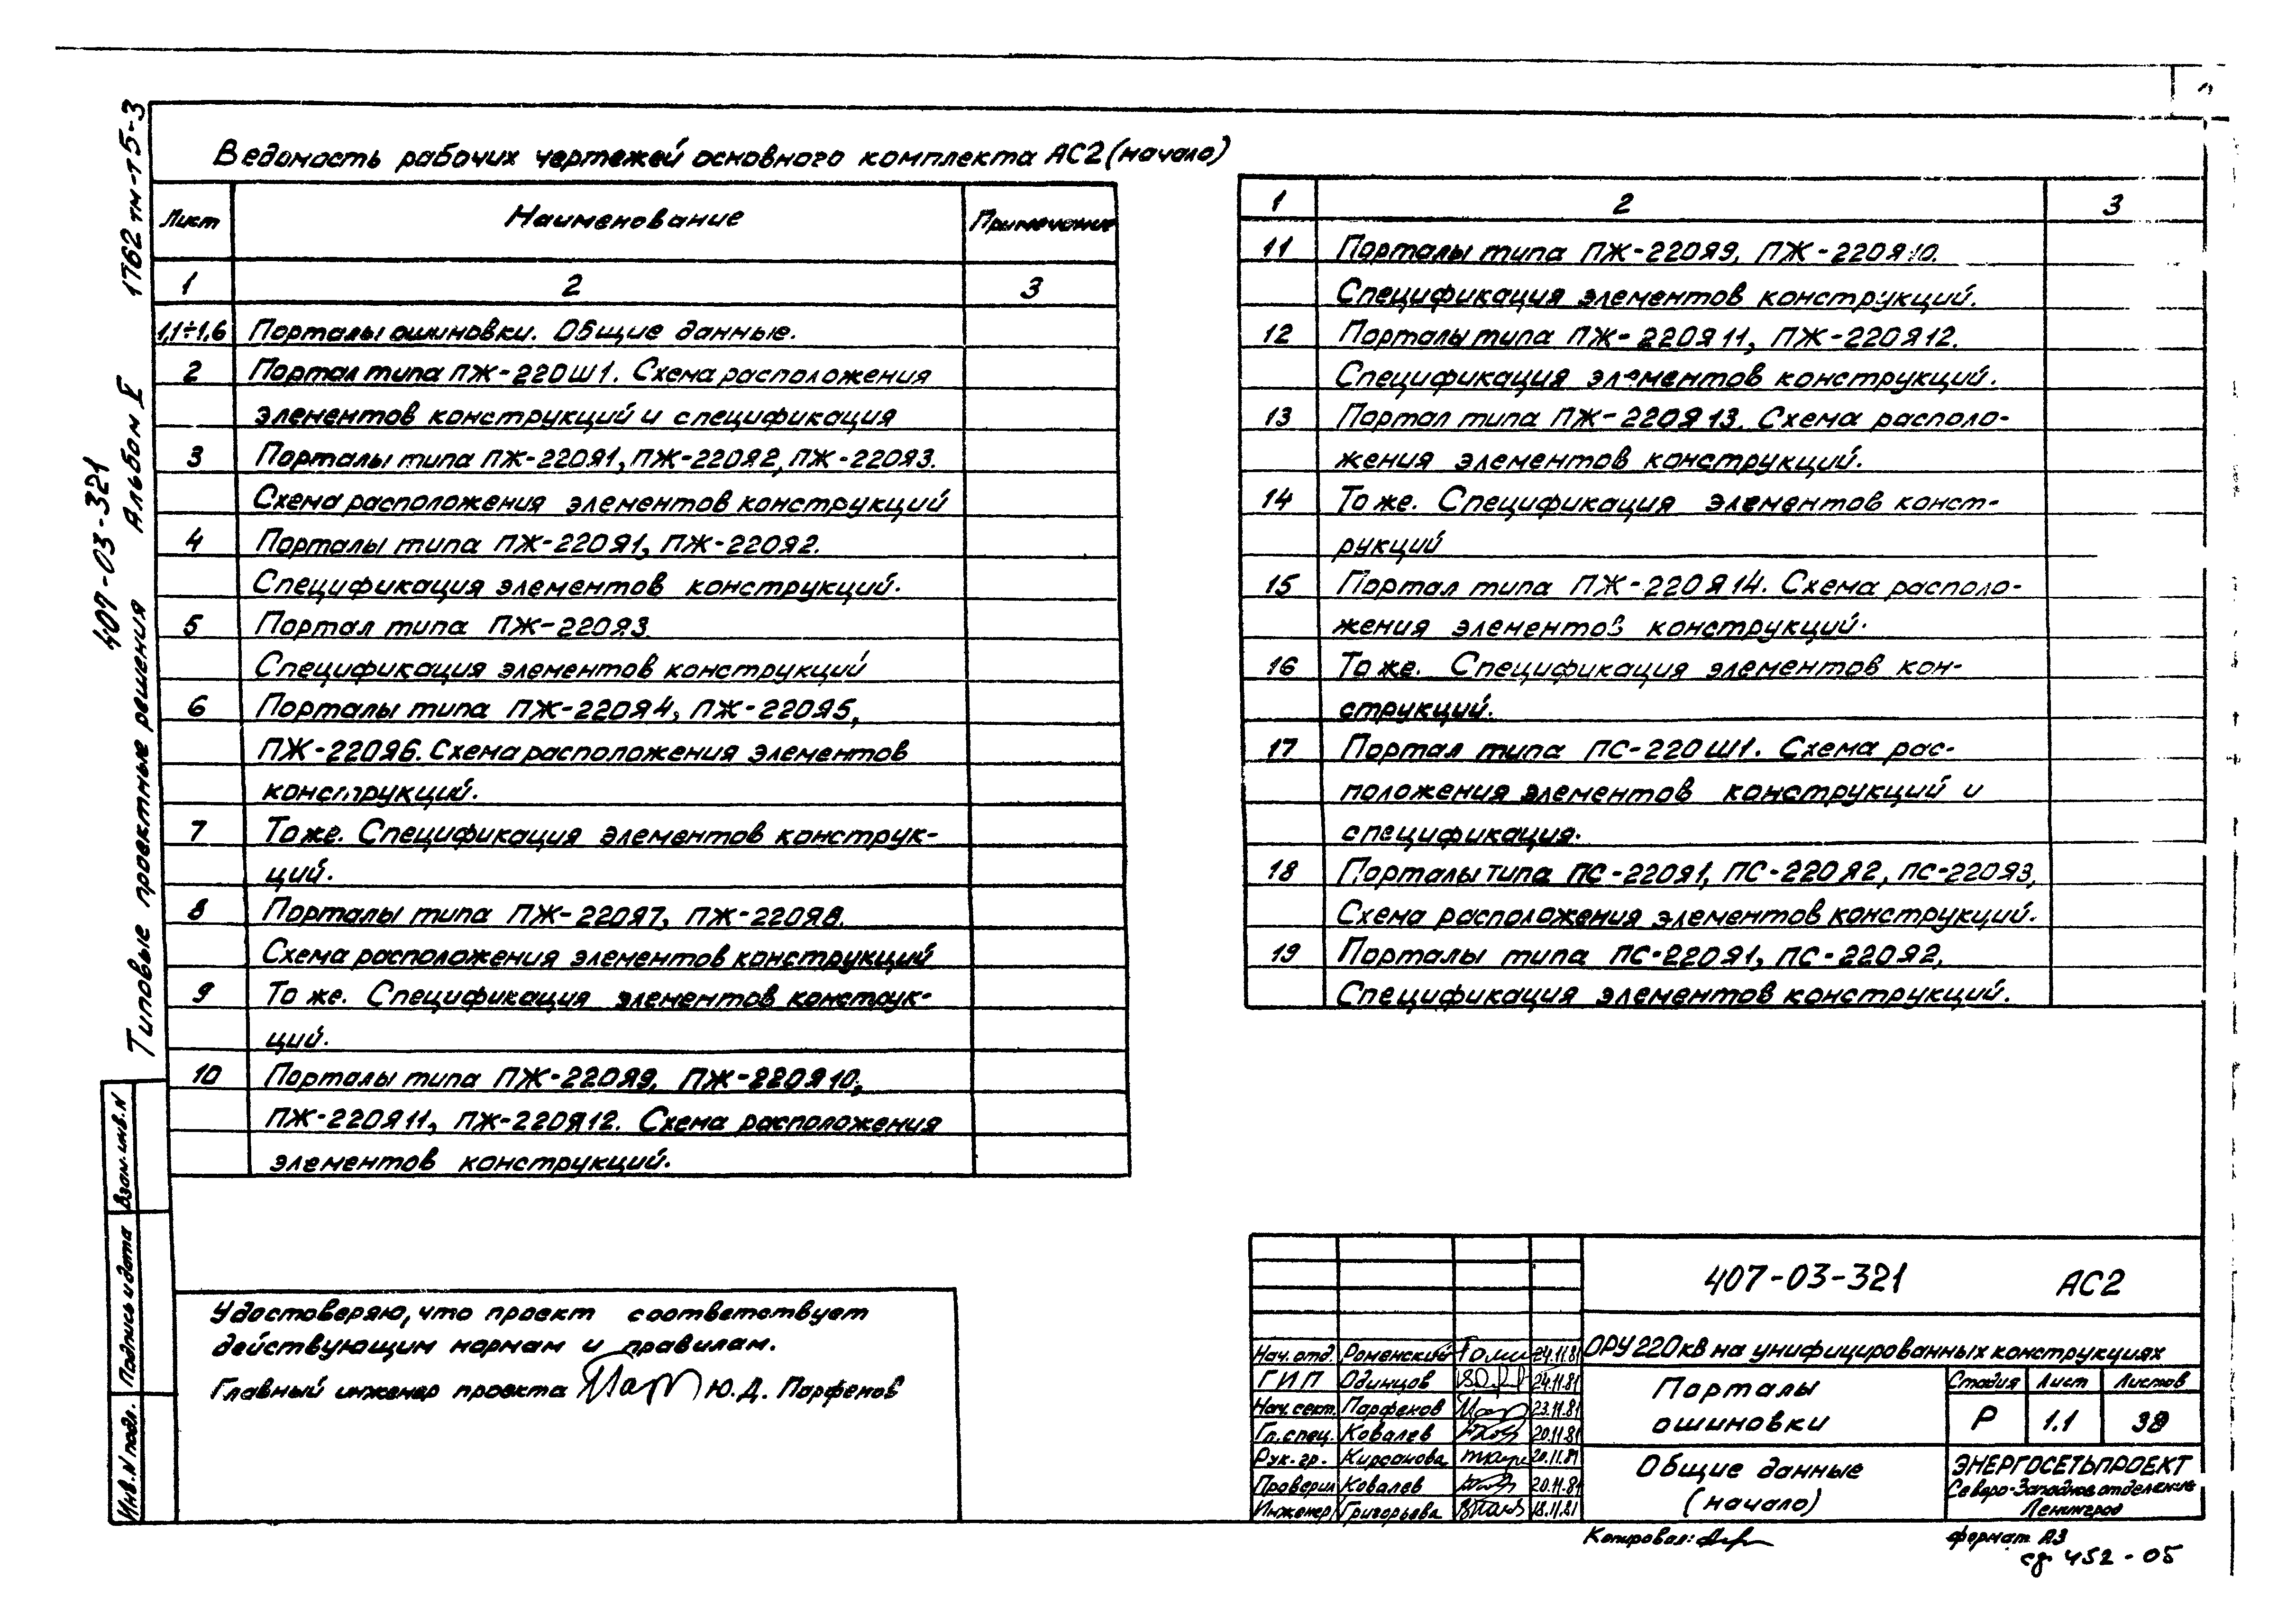 Ведомость рабочих чертежей основного комплекта АС2 (начало)
Лист Наименование Примечание
1 2 3
1,1÷1,6 Порталы ошиновки. Общие данные.
2 Портал типа ПЖ-220Ш1. Схема расположения
элементов конструкций и спецификация
3 Порталы типа ПЖ-220Я1, ПЖ-220Я2, ПЖ-220Я3.
Схема расположения элементов конструкций
4 Порталы типа ПЖ-220Я1, ПЖ-220Я2.
Спецификация элементов конструкций.
5 Портал типа ПЖ-220Я3.
Спецификация элементов конструкций
6 Порталы типа ПЖ-220Я4, ПЖ-220Я5,
ПЖ-220Я6. Схема расположения элементов
конструкций.
7 То же. Спецификация элементов конструк-
ций.
8 Порталы типа ПЖ-220Я7, ПЖ-220Я8.
Схема расположения элементов конструкций
9 То же. Спецификация элементов конструк-
ций.
10 Порталы типа ПЖ-220Я9, ПЖ-220Я10,
ПЖ-220Я11, ПЖ-220Я12. Схема расположения
элементов конструкций.
1 2 3
11 Порталы типа ПЖ-220Я9, ПЖ-220Я10.
Спецификация элементов конструкций.
12 Порталы типа ПЖ-220Я11, ПЖ-220Я12.
Спецификация элементов конструкций.
13 Портал типа ПЖ-220Я13. Схема располо-
жения элементов конструкций.
14 То же. Спецификация элементов конст-
рукций
15 Портал типа ПЖ-220Я14. Схема располо-
жения элементов конструкций.
16 То же. Спецификация элементов кон-
струкций.
17 Портал типа ПС-220Ш1. Схема рас-
положения элементов конструкций и
спецификация.
18 Порталы типа ПС-220Я1, ПС-220Я2, ПС-220Я3,
Схема расположения элементов конструкций.
19 Порталы типа ПС-220Я1, ПС-220Я2,
Спецификация элементов конструкций.
Типовые проектные решения Альбом V 1762тм-т5-3
407-03-321
Взам.инв.N
Подпись и дата
Инв.N подл.
Удостоверяю, что проект соответствует
действующим нормам и правилам.
Главный инженер проекта Ю.Д. Парфенов
407-03-321 АС2
ОРУ 220кВ на унифицированных конструкциях
Нач.отд. Роменский 24.11.81
ГИП Одинцов 24.11.81
Нач.сект. Парфенов 23.11.81
Гл.спец. Ковалев 20.11.81
Рук.гр. Кирсанова 20.11.81
Проверил Ковалев 20.11.81
Инженер Григорьева 18.11.81
Порталы
ошиновки
Стадия Лист Листов
Р 1.1
Общие данные
(начало)
ЭНЕРГОСЕТЬПРОЕКТ
Северо-Западное отделение
Ленинград
Копировал:
формат А3
452-05